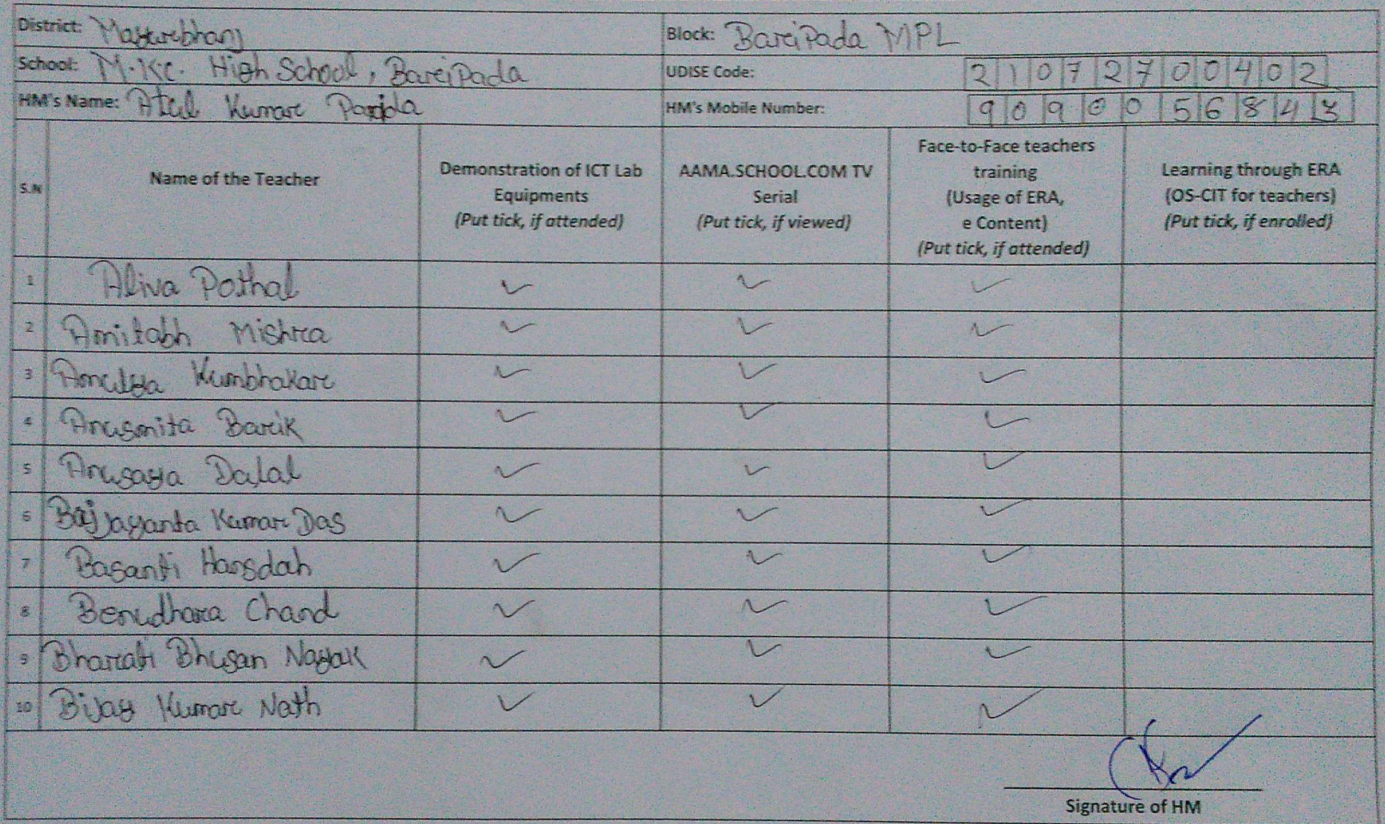 District: Mayurebhanj Block: BareiPada MPL
School: M.K.C. High School, BareiPada UDISE Code: 21072700402
HM's Name: Atul Kumare Parida HM's Mobile Number: 9090056843
S.N Name of the Teacher Demonstration of ICT Lab Equipments (Put tick, if attended) AAMA.SCHOOL.COM TV Serial (Put tick, if viewed) Face-to-Face teachers training (Usage of ERA, e Content) (Put tick, if attended) Learning through ERA (OS-CIT for teachers) (Put tick, if enrolled)
1 Aliva Pothal ✓ ✓ ✓
2 Amitabh Mishra ✓ ✓ ✓
3 Amulya Kumbhakare ✓ ✓ ✓
4 Anusmita Bareik ✓ ✓ ✓
5 Anusaya Dalal ✓ ✓ ✓
6 Baijayanta Kumare Das ✓ ✓ ✓
7 Basanti Hansdah ✓ ✓ ✓
8 Benudhara Chand ✓ ✓ ✓
9 Bharati Bhusan Nayak ✓ ✓ ✓
10 Bijay Kumare Nath ✓ ✓ ✓
Signature of HM